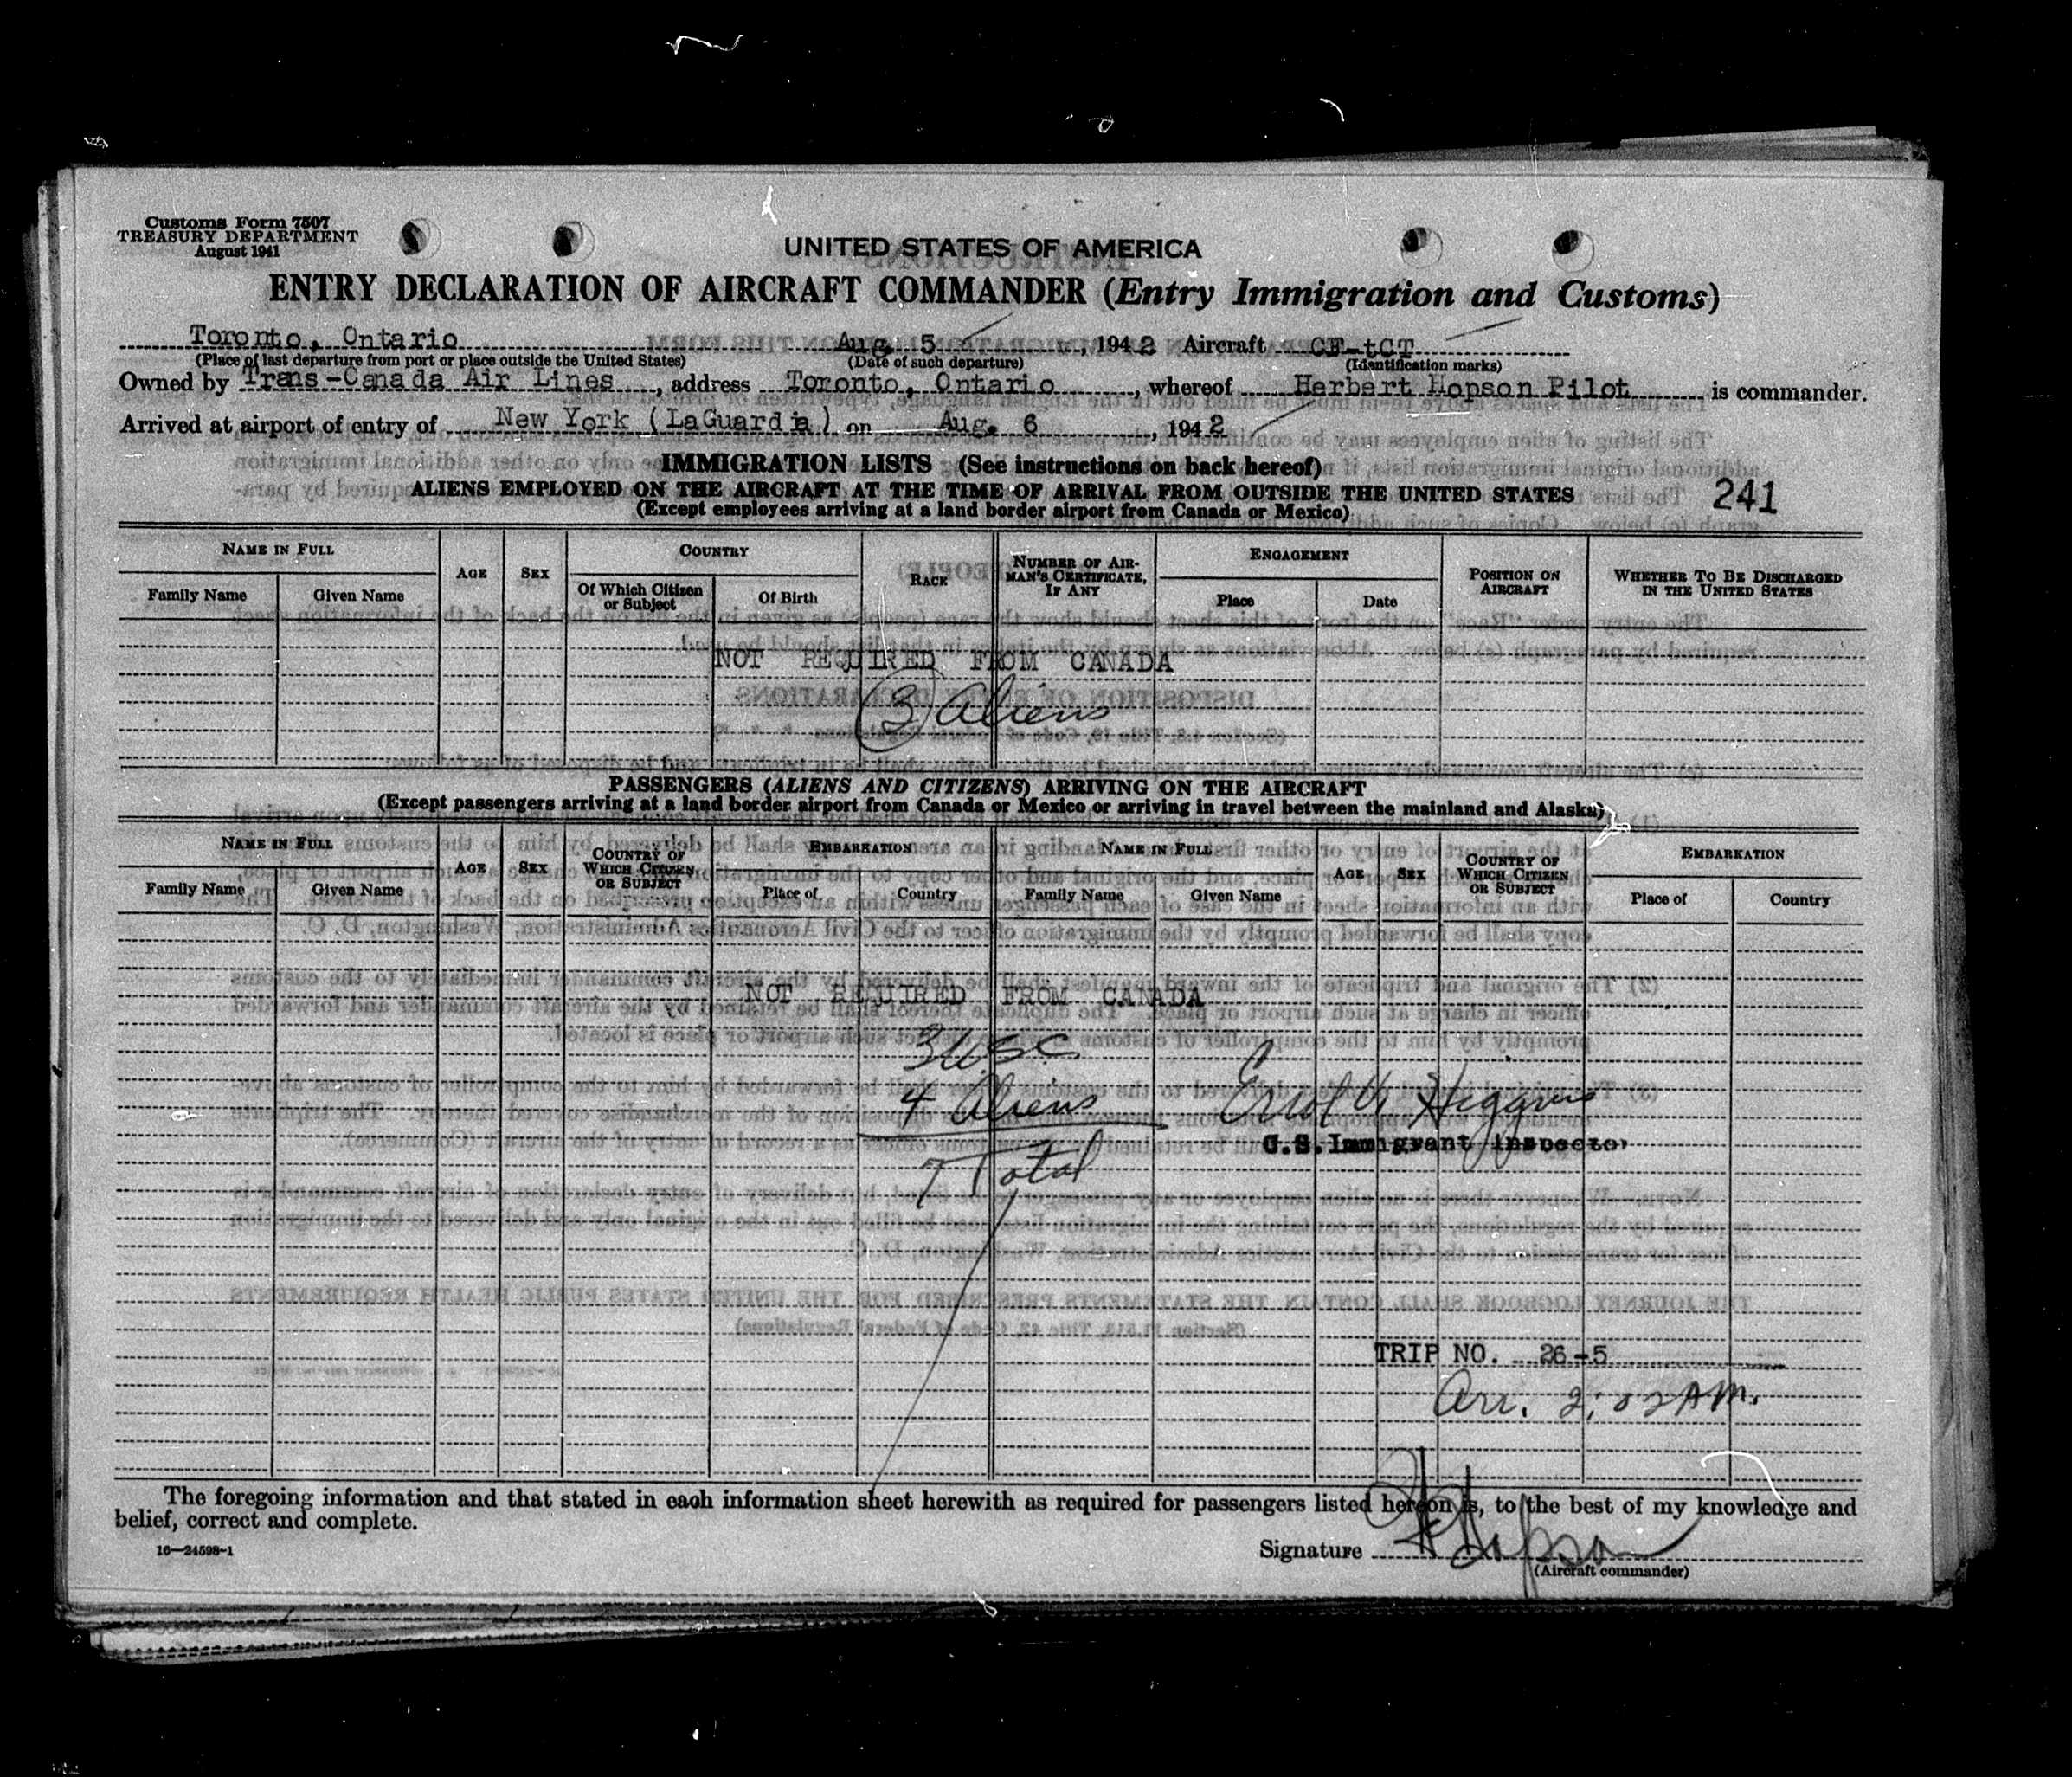 Customs Form 7507
TREASURY DEPARTMENT
August 1941
UNITED STATES OF AMERICA
ENTRY DECLARATION OF AIRCRAFT COMMANDER (Entry Immigration and Customs)
Toronto, Ontario Aug. 5, 1942 Aircraft CF-tCT
(Place of last departure from port or place outside the United States) (Date of such departure) (Identification marks)
Owned by Trans-Canada Air Lines, address Toronto, Ontario, whereof Herbert Hopson Pilot is commander.
Arrived at airport of entry of New York (LaGuardia) on Aug. 6, 1942
IMMIGRATION LISTS (See instructions on back hereof)
ALIENS EMPLOYED ON THE AIRCRAFT AT THE TIME OF ARRIVAL FROM OUTSIDE THE UNITED STATES 241
(Except employees arriving at a land border airport from Canada or Mexico)
NAME IN FULL AGE SEX COUNTRY RACE NUMBER OF AIRMAN'S CERTIFICATE, IF ANY ENGAGEMENT POSITION ON AIRCRAFT WHETHER TO BE DISCHARGED IN THE UNITED STATES
Family Name Given Name Of Which Citizen or Subject Of Birth Place Date
NOT REQUIRED FROM CANADA
3 Aliens
PASSENGERS (ALIENS AND CITIZENS) ARRIVING ON THE AIRCRAFT
(Except passengers arriving at a land border airport from Canada or Mexico or arriving in travel between the mainland and Alaska)
NAME IN FULL AGE SEX COUNTRY OF WHICH CITIZEN OR SUBJECT EMBARKATION NAME IN FULL AGE SEX COUNTRY OF WHICH CITIZEN OR SUBJECT EMBARKATION
Family Name Given Name Place of Country Family Name Given Name Place of Country
NOT REQUIRED FROM CANADA
3 USC
4 Aliens Higgins
7 Total U.S. Immigrant Inspector
TRIP NO. 26-5
Arr. 2:02 AM.
The foregoing information and that stated in each information sheet herewith as required for passengers listed hereon is, to the best of my knowledge and
belief, correct and complete.
16—24598-1
Signature H Hopson
(Aircraft commander)